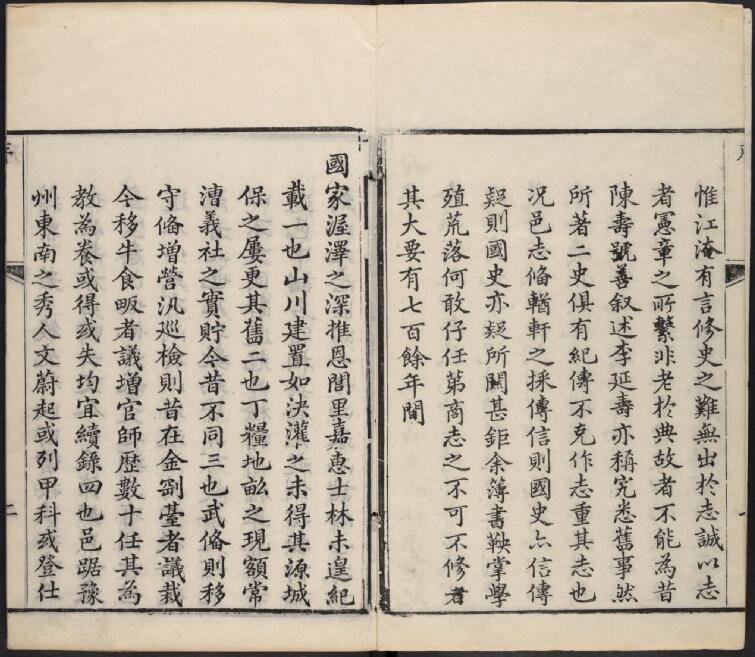 惟江淹有言修史之難無出於志誠以志
者憲章之所繫非老於典故者不能為昔
陳壽號善叙述李延壽亦稱究悉舊事然
所著二史俱有紀傳不克作志重其志也
况邑志俻輶軒之採傳信則國史亦信傳
疑則國史亦疑所關甚鉅余簿書鞅掌學
殖荒落何敢仔任第商志之不可不修者
其大要有七百餘年間
國家渥澤之深推恩閭里嘉惠士林未遑紀
載一也山川建置如決灌之未得其源城
保之屢更其舊二也丁糧地畝之現額常
漕義社之實貯今昔不同三也武俻則移
守俻增營汛巡檢則昔在金剛臺者議裁
今移牛食畈者議增官師歴數十任其為
教為養或得或失均宜續錄四也邑踞豫
州東南之秀人文蔚起或列甲科或登仕
二